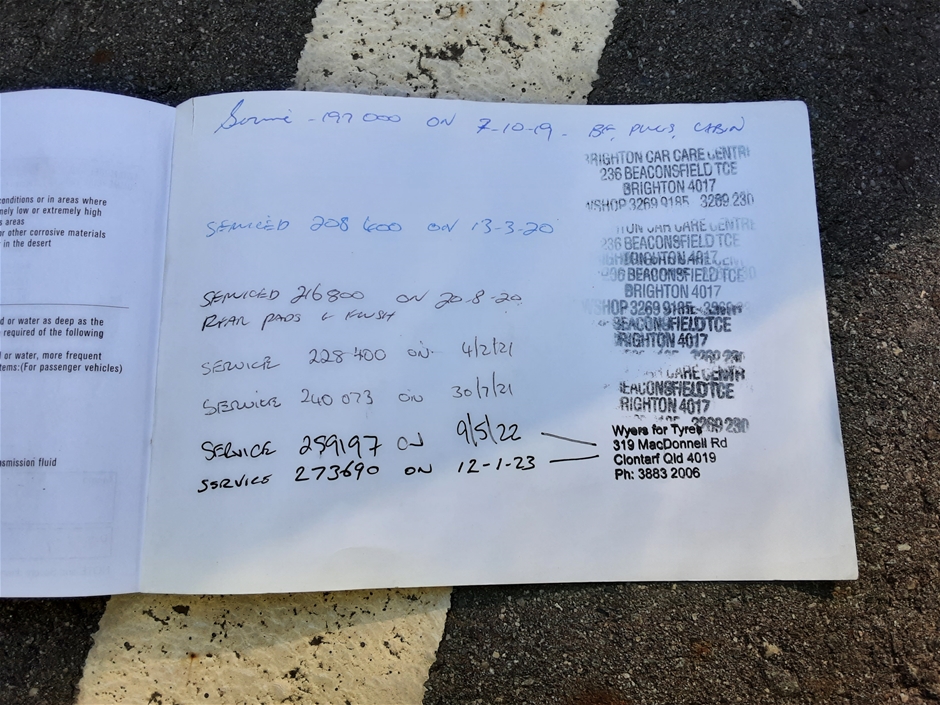 conditions or in areas where
mely low or extremely high
s areas
or other corrosive materials
in the desert
d or water as deep as the
required of the following
l or water, more frequent
tems:(For passenger vehicles)
smission fluid
Service - 197000 ON 7-10-19 - BF, PLUGS, CABIN
BRIGHTON CAR CARE CENTRE
236 BEACONSFIELD TCE
BRIGHTON 4017
WSHOP 3269 9185 3269 230
SERVICED 208400 ON 13-3-20
TON CAR CARE CENTRE
236 BEACONSFIELD TCE
BRIGHTON 4017
36 BEACONSFIELD TCE
BRIGHTON 4017
SHOP 3269 9185
SERVICED 216800 ON 20-8-20
REAR PADS & FLUSH
BEACONSFIELD TCE
BRIGHTON 4017
3269 230
SERVICE 228400 ON 4/2/21
CAR CARE CENTR
EACONSFIELD TCE
RIGHTON 4017
3269 230
SERVICE 240073 ON 30/7/21
SERVICE 259197 ON 9/5/22
SERVICE 273690 ON 12-1-23
Wyers for Tyres
319 MacDonnell Rd
Clontarf Qld 4019
Ph: 3883 2006